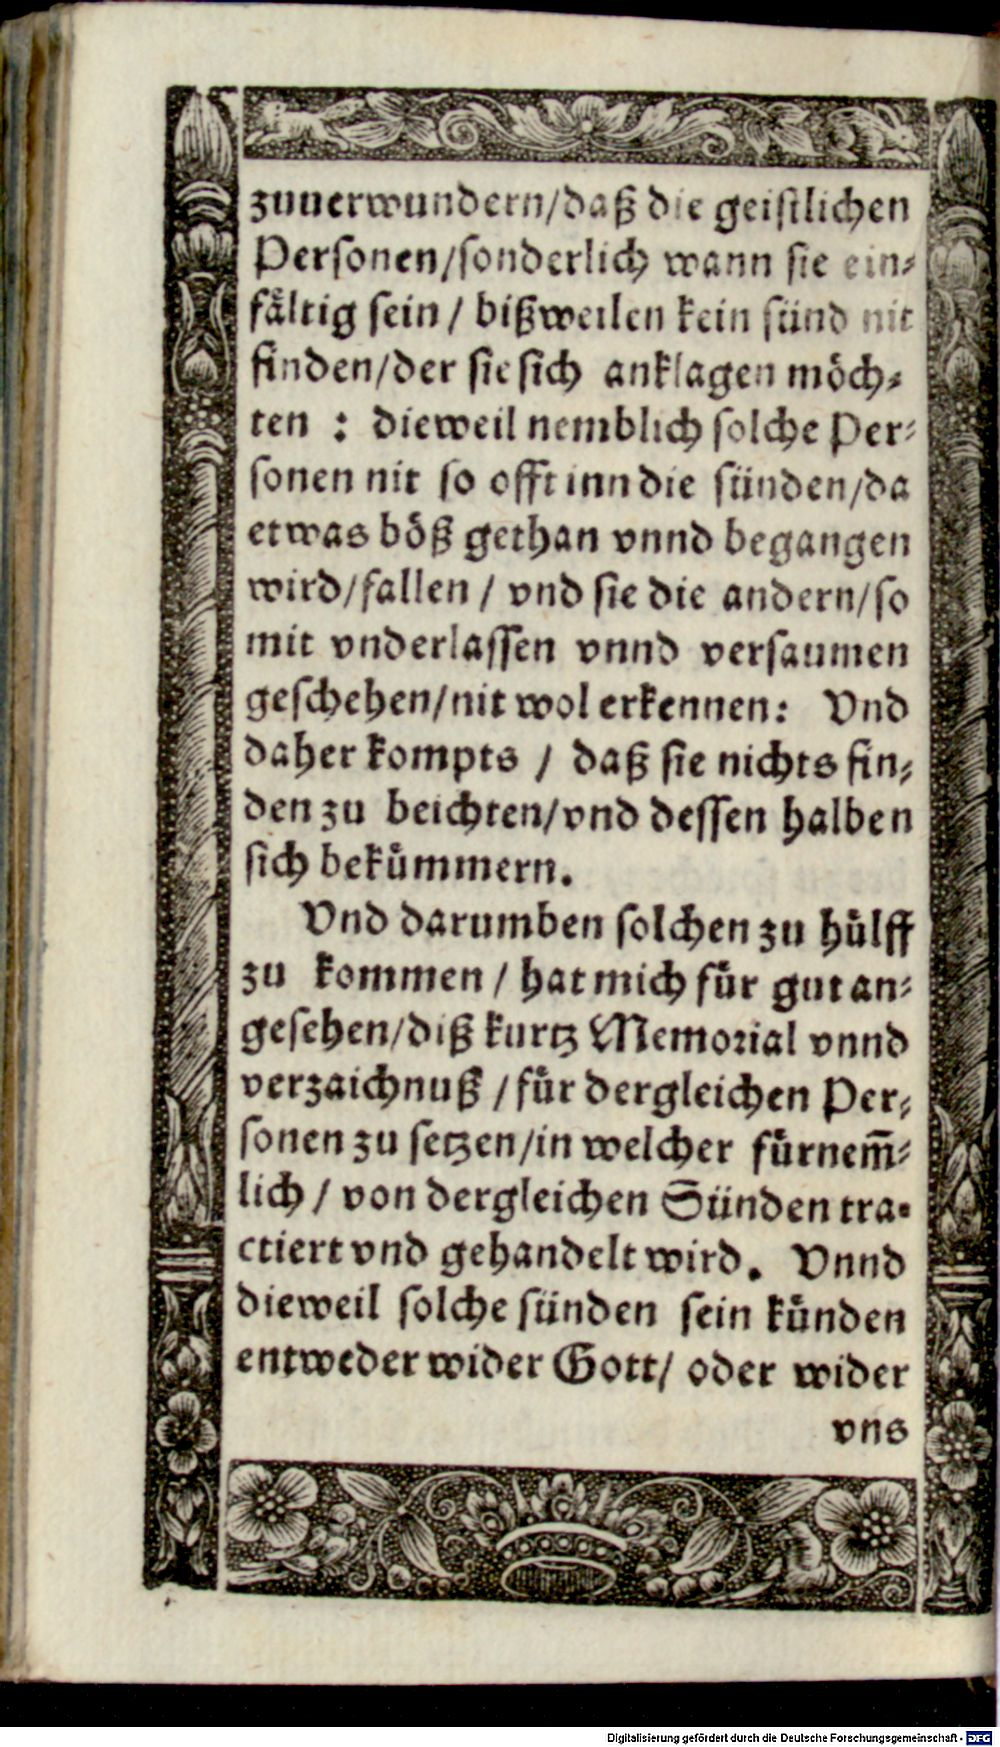 zuuerwundern/daß die geistlichen
Personen/sonderlich wann sie ein⸗
fåltig sein / bißweilen kein sünd nit
finden/der sie sich anklagen möch⸗
ten : dieweil nemblich solche Per⸗
sonen nit so offt inn die sünden/da
etwas böß gethan vnnd begangen
wird/fallen / vnd sie die andern/so
mit vnderlassen vnnd versaumen
geschehen/nit wol erkennen: Vnd
daher kompts / daß sie nichts fin⸗
den zu beichten/vnd dessen halben
sich bekům̈mern.
Vnd darumben solchen zu hůlff
zu kommen / hat mich fůr gut an⸗
gesehen/diß kurtz Memorial vnnd
verzaichnuß / fůr dergleichen Per⸗
sonen zu setzen/in welcher fůrnem̄⸗
lich / von dergleichen Sünden tra⸗
ctiert vnd gehandelt wird. Vnnd
dieweil solche sünden sein kůnden
entweder wider Gott/ oder wider
vns
Digitalisierung gefördert durch die Deutsche Forschungsgemeinschaft - DFG